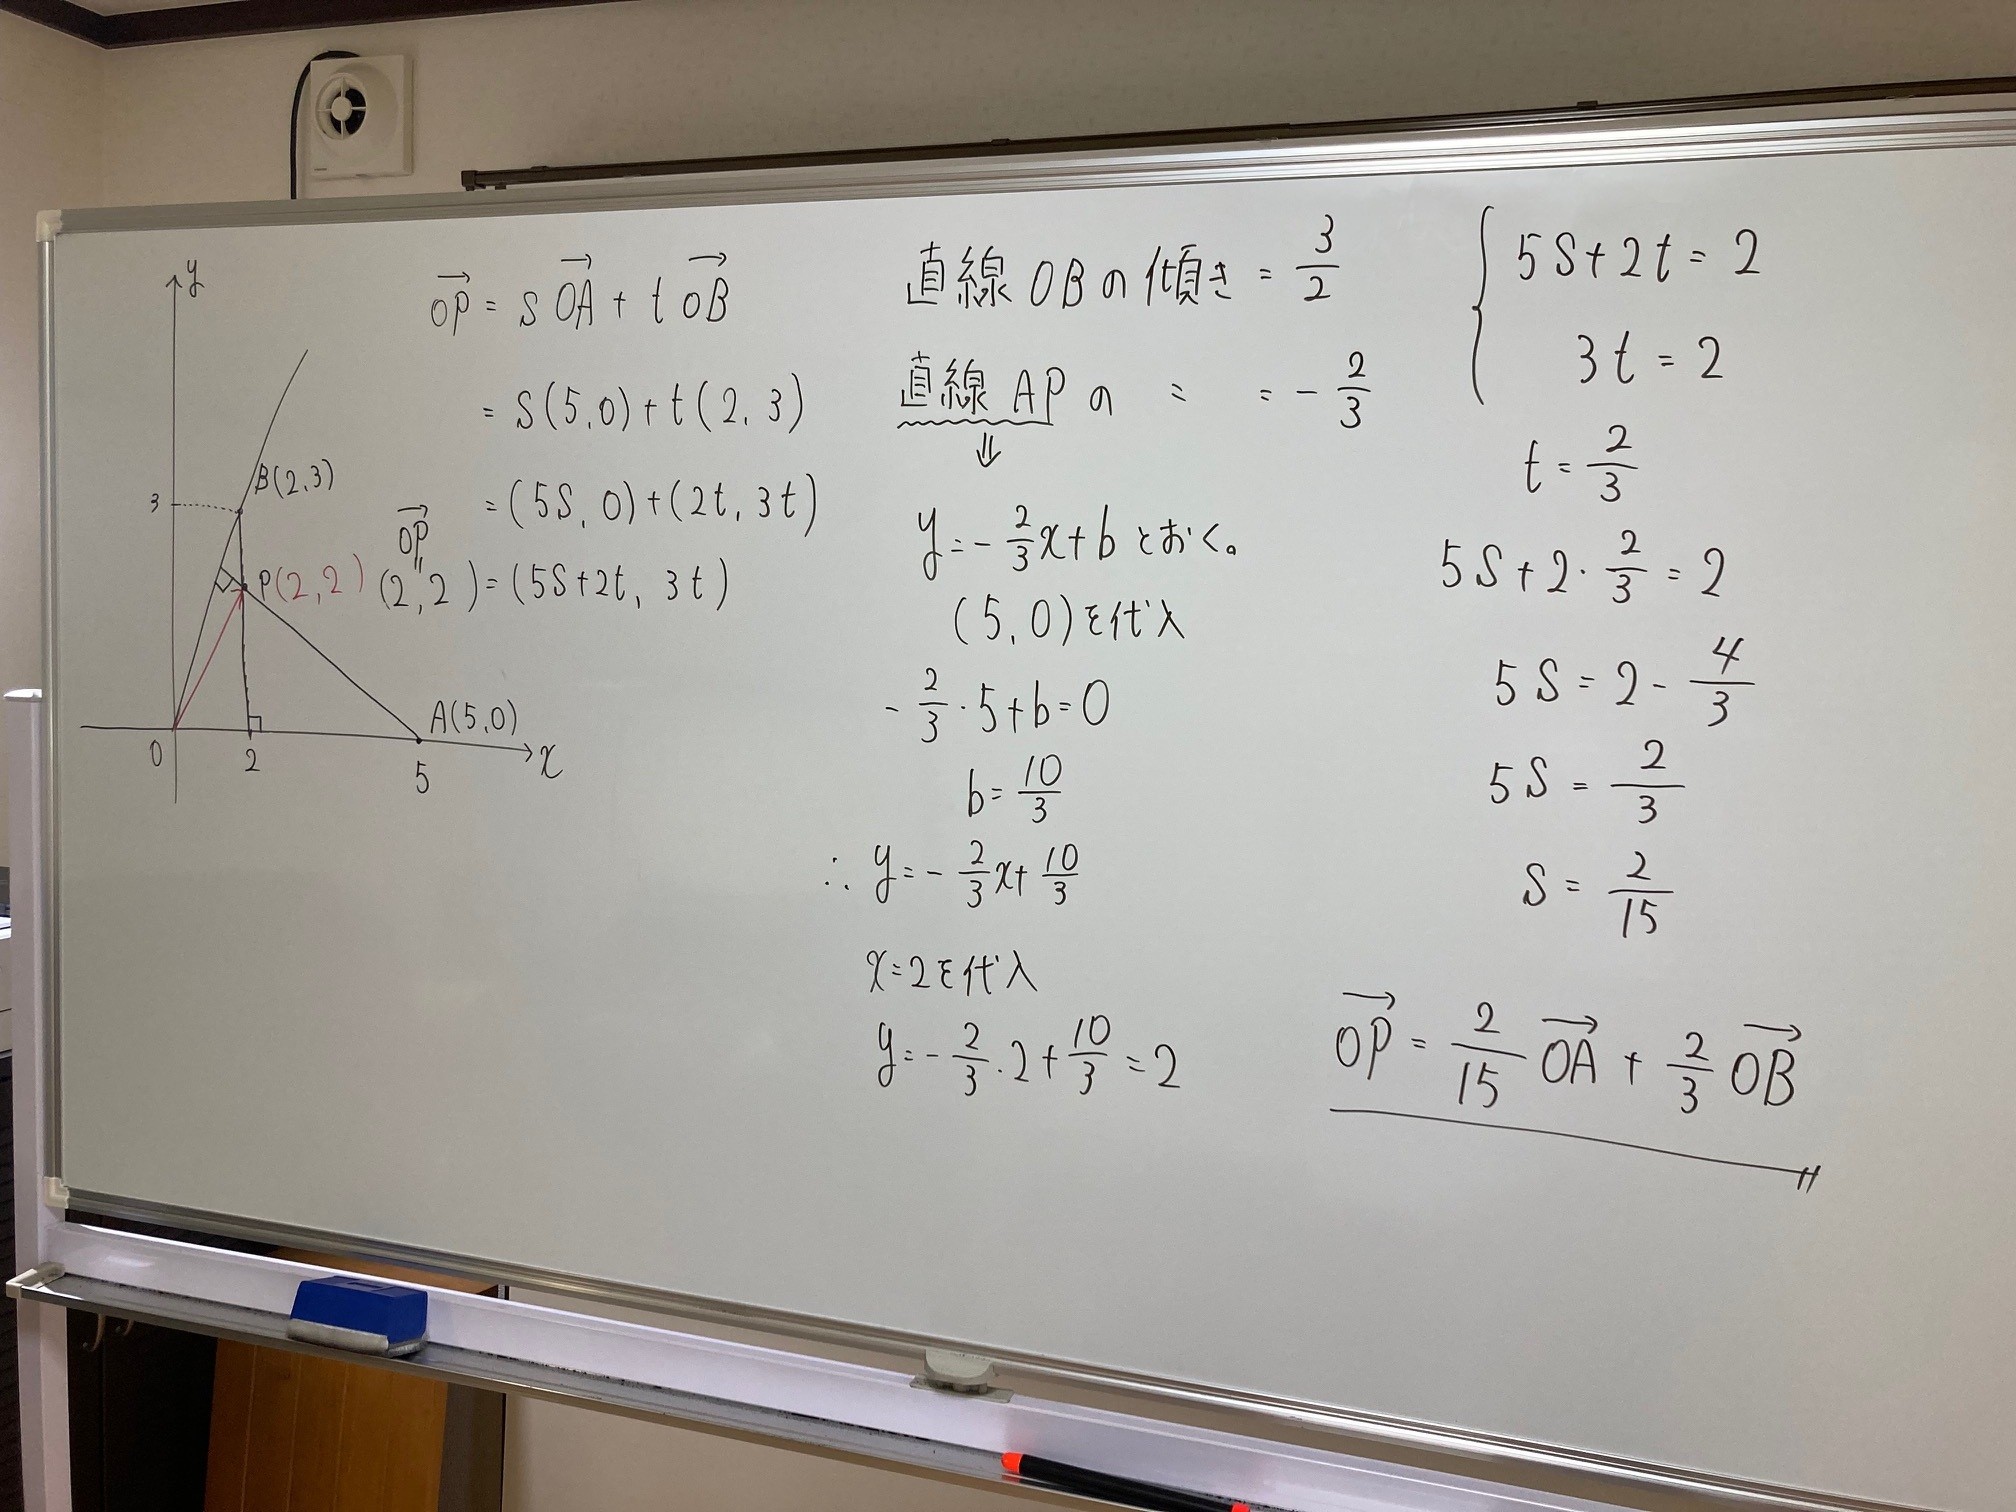 y
B(2,3)
3
P(2,2)
A(5,0)
0 2 5 x
→OP = s→OA + t→OB
= s(5,0)+t(2,3)
= (5s,0)+(2t,3t)
→OP
"
(2,2) = (5s+2t, 3t)
直線OBの傾き = 3/2
直線APの 〃 = -2/3
⇓
y = -2/3x+b とおく。
(5,0)を代入
-2/3・5+b=0
b=10/3
∴ y=-2/3x+10/3
x=2を代入
y=-2/3・2+10/3=2
{5s+2t=2
3t=2
t=2/3
5s+2・2/3=2
5s=2-4/3
5s=2/3
s=2/15
→OP = 2/15→OA + 2/3→OB